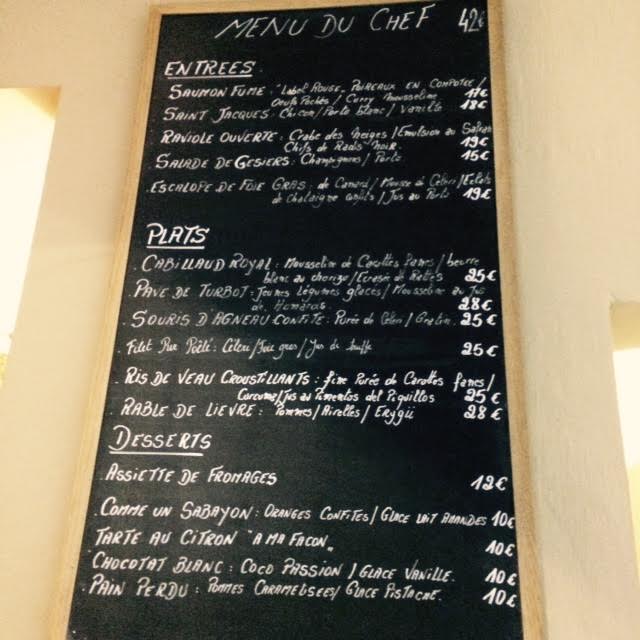 MENU DU CHEF 42€
ENTREES
SAUMON FUME : "Label ROUGE" POIREAUX EN COMPOTEE /
Oeufs Pochés / Curry Mousseline 17€
SAINT JACQUES : Chicon / Porto blanc / Vanille 18€
RAVIOLE OUVERTE : Crabe des Neiges / Emulsion au Safran
Chifs de Radis Noir. 19€
SALADE DE GESIERS : Champignons / Porto 15€
ESCALOPE DE FOIE GRAS : de Canard / Mousse de Céleri / Eclats
de Chataigne confits / Jus au Porto 19€
PLATS
CABILLAUD ROYAL : Mousseline de Carottes Fanes / beurre
blanc au chorizo / Ecrasée de Rattes 25€
PAVE DE TURBOT : Jeunes légumes glacés / Mousseline au Jus
de Homards 28€
SOURIS D'AGNEAU CONFITE : Purée de Céleri / Gratin. 25€
Filet Pur Poêlé : Céleri / Foie gras / Jus de truffe 25€
RIS DE VEAU CROUSTILLANTS : fine Purée de Carottes fanes /
Curcuma / Jus au Pimentos del Piquillos 25€
RABLE DE LIEVRE : Pommes / Airelles / Eryngii 28€
DESSERTS
ASSIETTE DE FROMAGES 12€
COMME UN SABAYON : ORANGES CONFITES / GLACE LAIT AMANDES 10€
TARTE AU CITRON "A MA FACON" 10€
CHOCOTAT BLANC : COCO PASSION / GLACE VANILLE. 10€
PAIN PERDU : POMMES CARAMELISEES / GLACE PISTACHE. 10€